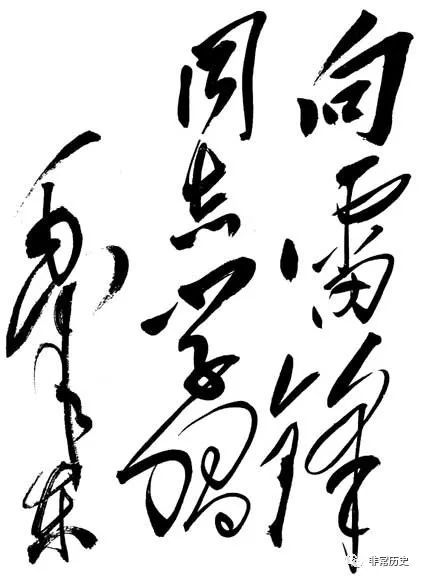 向雷锋
同志学习
毛泽东
非常历史